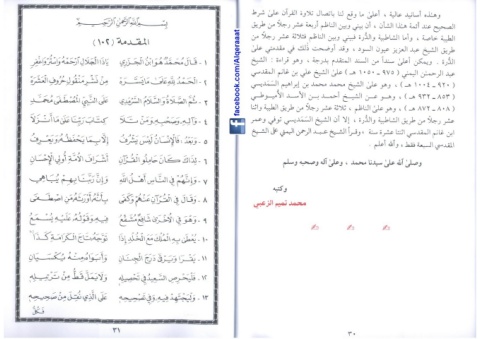 وهذه أسانيد عالية ، أعلى ما وقع لنا باتصال تلاوة القرآن على شرط
الصحيح عند أئمة هذا الشأن ، إن بيني وبين الناظم أربعة عشر رجلاً من طريق
الطيبة خاصة ، وأما الشاطبية والدُّرة فبيني وبين الناظم ثلاثة عشر رجلاً من طريق
الشيخ عبد العزيز عيون السود ، وقد أوضحت ذلك في مقدمتي على
الدُّرة . ويمكن أعلى سنداً من السند المتقدم بدرجة ، وهو قراءة : الشيخ
عبد الرحمن اليمني ( ٩٧٥ ~ ١٠٥٠ هـ ) على الشيخ علي بن غانم المقدسي
( ٩٢٠ ~ ١٠٠٤ هـ ) ، وهو على الشيخ محمد بن إبراهيم السَّمَديسي
( ٨٥٣ ~ ٩٣٢ هـ ) ، وهو على الشيخ أحمد بن الأسد الأميوطي
( ٨٠٨ ~ ٨٧٢ هـ ) ، وهو على الناظم ،
عشر رجلاً من طريق الشاطبية والدُّرة ، إلا أن الشيخ السَّمَديسي توفي وعمر
ابن غانم المقدسي اثنتا عشرة سنة . وقرأ الشيخ عبد الرحمن اليمني على الشيخ
المقدسي السبعة فقط ، والله أعلم .
وصلى الله على سيدنا محمد ، وعلى آله وصحبه وسلم
وكتبه
محمد تميم الزعبي
٣٠
facebook.com/Alqeraaat
بسم الله الرحمن الرحيم
المقدمة (١٠٢)
١ - قَالَ مُحَمَّدٌ هُوَ ابْنُ الْجَزَرِي يَا ذَا الْجَلَالِ ارْحَمْهُ وَاسْتُرْ وَاغْفِرِ
٢ - الْحَمْدُ لِلَّهِ عَلَى مَا يَسَّرَهُ مِنْ نَشْرِ مَنْقُولِ حُرُوفِ الْعَشَرَهْ
٣ - ثُمَّ الصَّلَاةُ وَالسَّلَامُ السَّرْمَدِي عَلَى النَّبِيِّ الْمُصْطَفَى مُحَمَّدِ
٤ - وَآلِهِ وَصَحْبِهِ وَمَنْ تَلَا كِتَابَ رَبِّنَا عَلَى مَا أَنْزَلَا
٥ - وَبَعْدُ : فَالْإِنْسَانُ لَيْسَ يَشْرُفُ إِلَّا بِمَا يَحْفَظُهُ وَيَعْرِفُ
٦ - لِذَاكَ كَانَ حَامِلُو الْقُرْآنِ أَشْرَافَ الْأُمَّةِ أُولِي الْإِحْسَانِ
٧ - وَإِنَّهُمْ فِي النَّاسِ أَهْلُ اللَّهِ وَإِنَّ رَبَّنَا بِهِمْ يُبَاهِي
٨ - وَقَالَ فِي الْقُرْآنِ عَنْهُمْ وَكَفَى بِأَنَّهُ أَوْرَثَهُ مَنِ اصْطَفَى
٩ - وَهُوَ فِي الْأُخْرَى شَافِعٌ مُشَفَّعُ فِيهِ وَقَوْلُهُ عَلَيْهِ يُسْمَعُ
١٠ - يُعْطَى بِهِ الْمُلْكَ مَعَ الْخُلْدِ إِذَا تَوَّجَهُ تَاجَ الْكَرَامَةِ كَذَا
١١ - يَقْرَا وَيَرْقَى دَرَجَ الْجِنَانِ وَأَبَوَاهُ مِنْهُ يُكْسَيَانِ
١٢ - فَلْيَحْرِصِ السَّعِيدُ فِي تَحْصِيلِهِ وَلَا يَمَلَّ قَطُّ مِنْ تَرْتِيلِهِ
١٣ - وَلْيَجْتَهِدْ فِيهِ وَفِي تَصْحِيحِهِ عَلَى الَّذِي نُقِلَ مِنْ صَحِيحِهِ
٣١